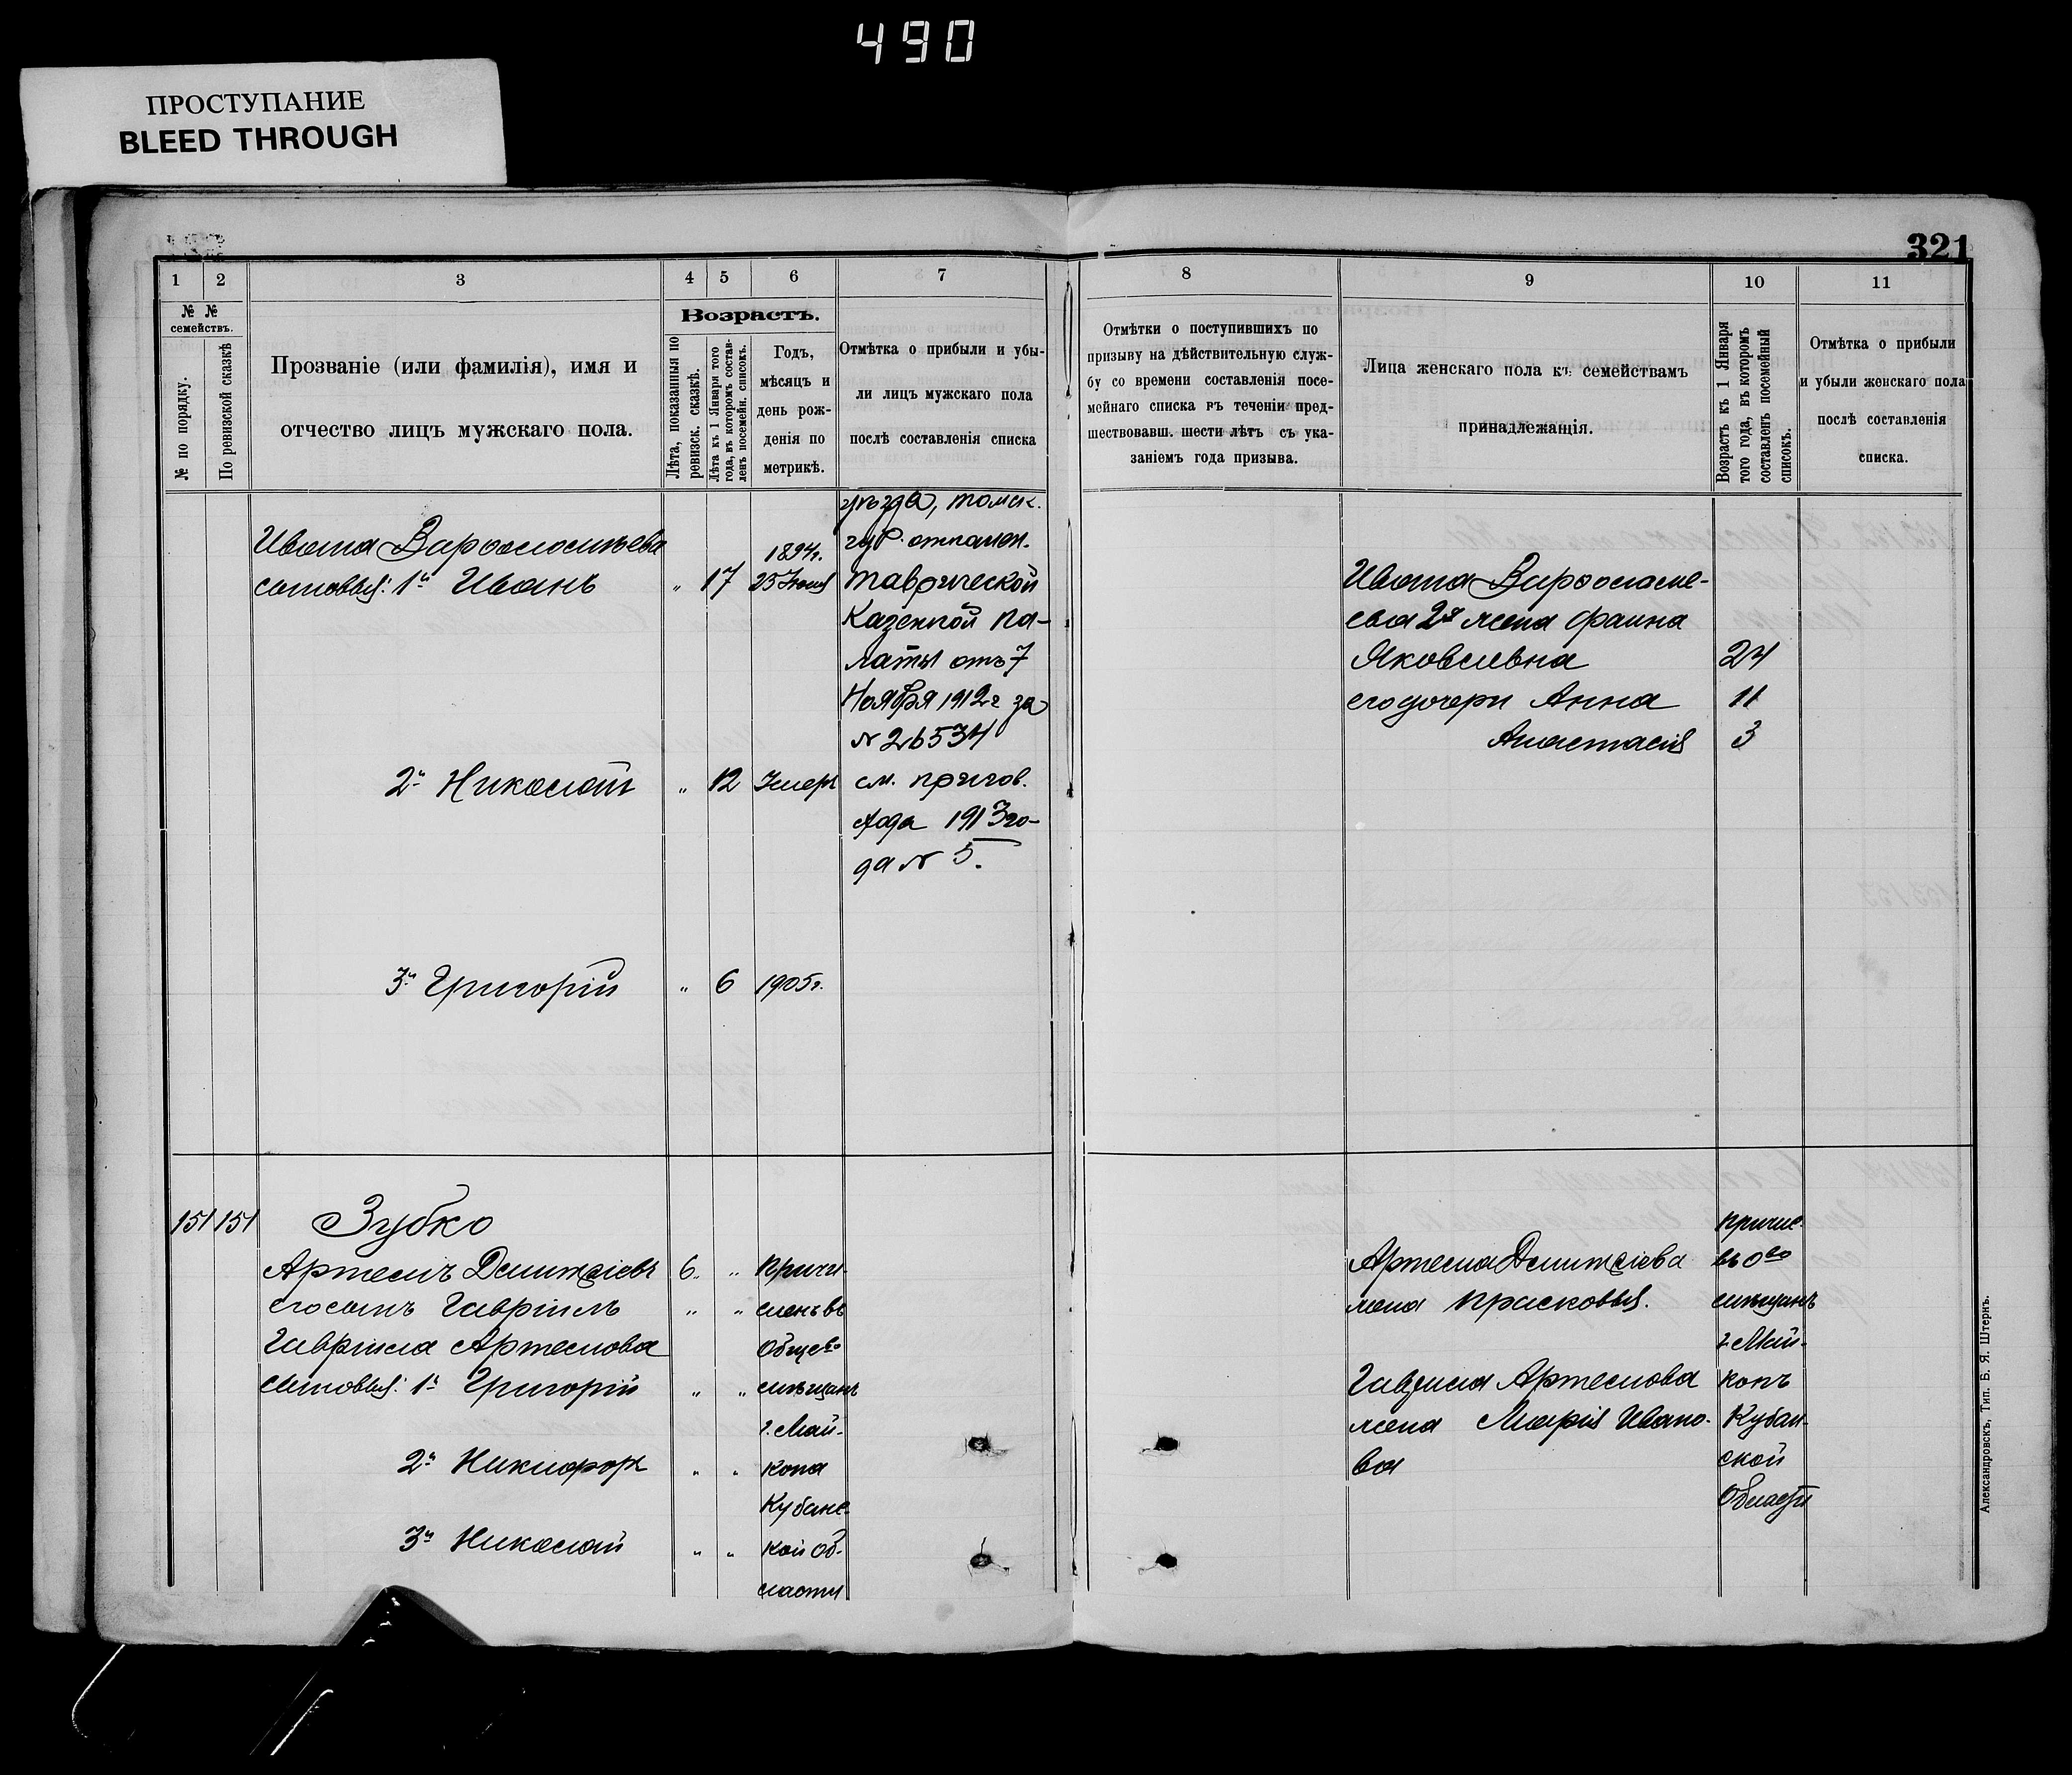 490
ПРОСТУПАНИЕ
BLEED THROUGH
321
1 2 3 4 5 6 7
№ №
семействъ.
№ по порядку.
По ревизской сказкѣ
Прозваніе (или фамилія), имя и
отчество лицъ мужскаго пола.
Возрастъ.
Лѣта, показанныя по
ревизск. сказкѣ.
Лѣта къ 1 Января того
года, въ которомъ состав-
ленъ посемейн. списокъ.
Годъ,
мѣсяцъ и
день рож-
денія по
метрикѣ.
Отмѣтка о прибыли и убы-
ли лицъ мужскаго пола
послѣ составленія списка
уѣзда, томск.
Ивана Варфоломѣева
губ.
1894г.
сыновья: 1й Иванъ " 17 23 Іюня
Таврической
Казенной Па-
латы отъ 7
Ноября 1912г за
№ 26534
2й Николай " 12 Умеръ
см. пригов.
схода 1913 го-
да № 5.
3й Григорій " 6 1905г.
151 151 Зубко
Артемъ Дмитріевъ 6. " Причи-
его сынъ Гавріилъ " " сленъ въ
Гавріила Артемова Общество
сыновья: 1й Григорій " " мѣщанъ
г. Май-
2й Никифоръ " " копа
Кубанс-
3й Николай " " кой об-
ласти
8 9 10 11
Отмѣтки о поступившихъ по
призыву на дѣйствительную служ-
бу со времени составленія посе-
мейнаго списка въ теченіи пред-
шествовавш. шести лѣтъ съ ука-
заніемъ года призыва.
Лица женскаго пола къ семействамъ
принадлежащія.
Возрастъ къ 1 Января
того года, въ которомъ
составленъ посемейный
списокъ.
Отмѣтка о прибыли
и убыли женскаго пола
послѣ составленія
списка.
Ивана Варфоломе-
ева 2я жена Фаина
Яковлевна 24
его дочери Анна 11
Анастасія 3
причис.
Артема Дмитріева въ Ово
жена Прасковья. мѣщанъ
г. Май-
Гавріила Артемова копъ
жена Марія Ивано- Кубан-
ва ской
Области
Александровскъ, Тип. Б. Я. Штернъ.